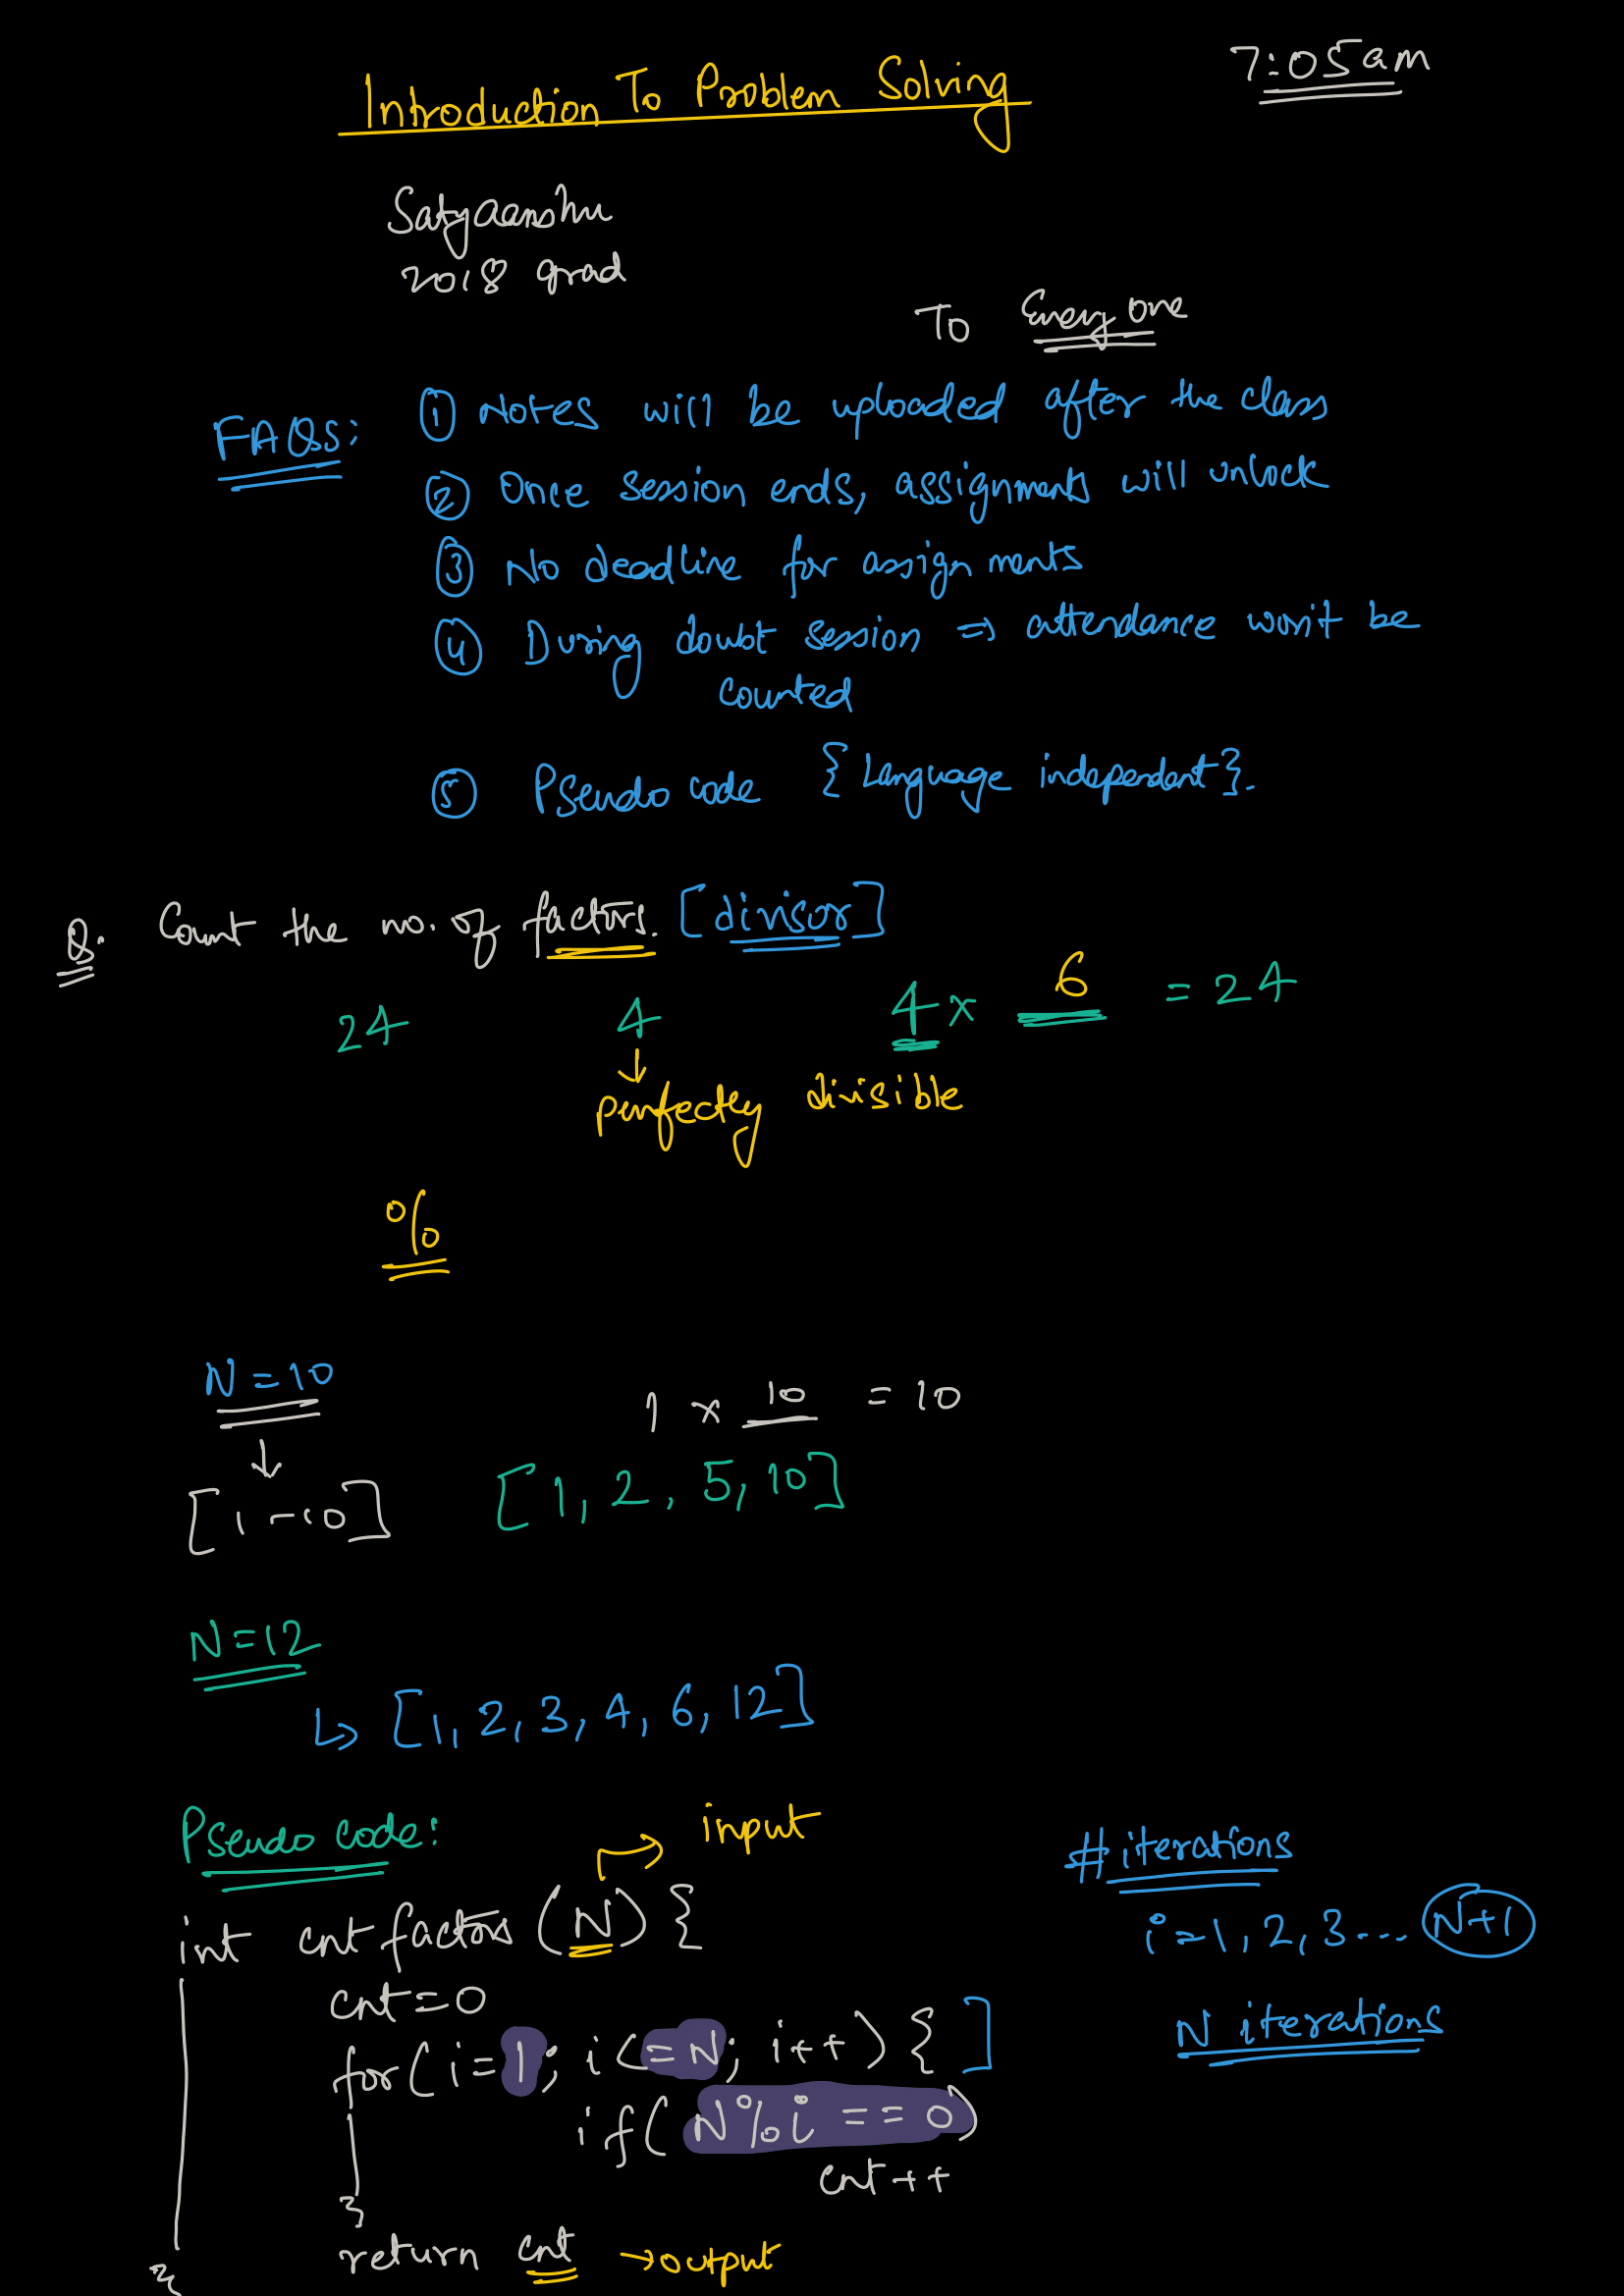 7:05am
Introduction To Problem Solving
Satyaanshu
2018 grad
To Everyone
FAQs:
① Notes will be uploaded after the class
② Once session ends, assignments will unlock
③ No deadline for assignments
④ During doubt session => attendance won't be
counted
⑤ Pseudo code {Language independent}.
Q. Count the no. of factors. [divisor]
24 4 4 x 6 = 24
↓
perfectly divisible
%
N=10
1 x 10 = 10
↓
[1-10] [1, 2, 5, 10]
N=12
↳ [1, 2, 3, 4, 6, 12]
Pseudo code:
→ input
int cntfactors (N) {
cnt=0
for(i=1; i<=N; i++) { ]
if(N%i == 0)
cnt++
}
return cnt → output
}
#iterations
i=1, 2, 3... N+1
N iterations